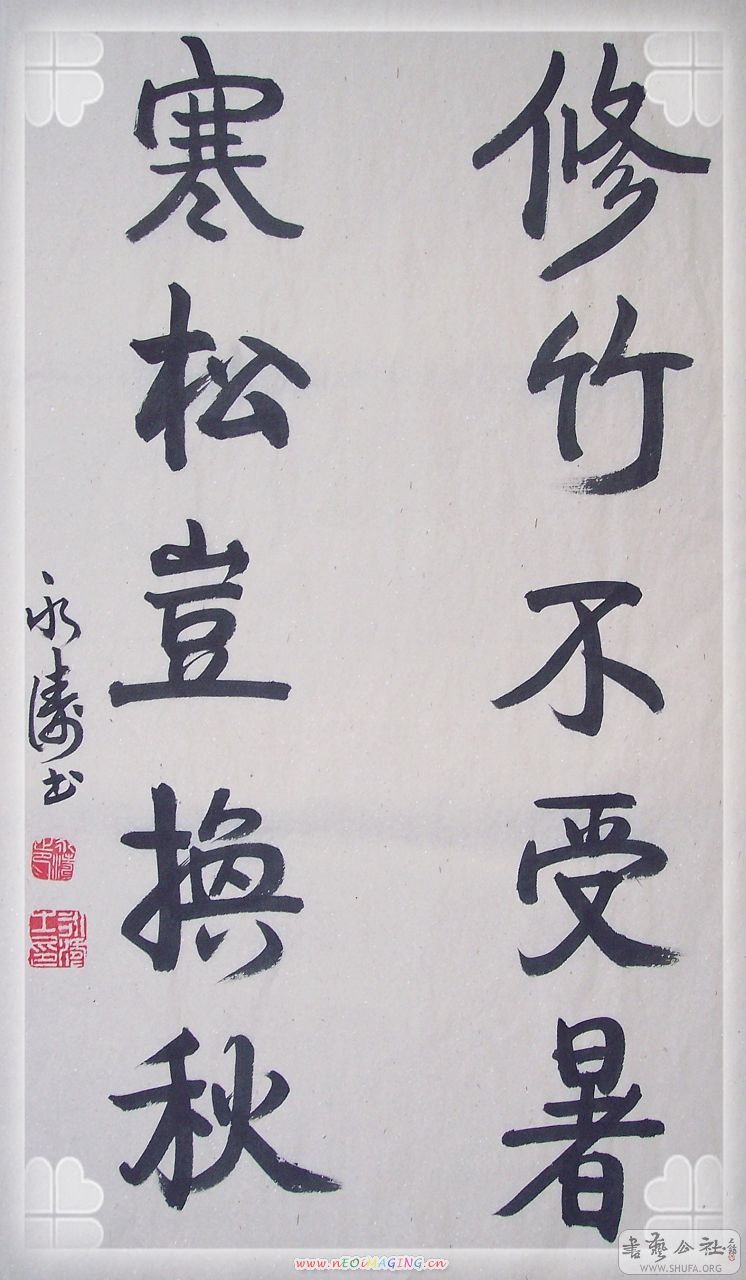 修竹不受暑
寒松豈換秋
永濤书
書藝公社
WWW.SHUFA.ORG
www.nEOiMAGING.cn